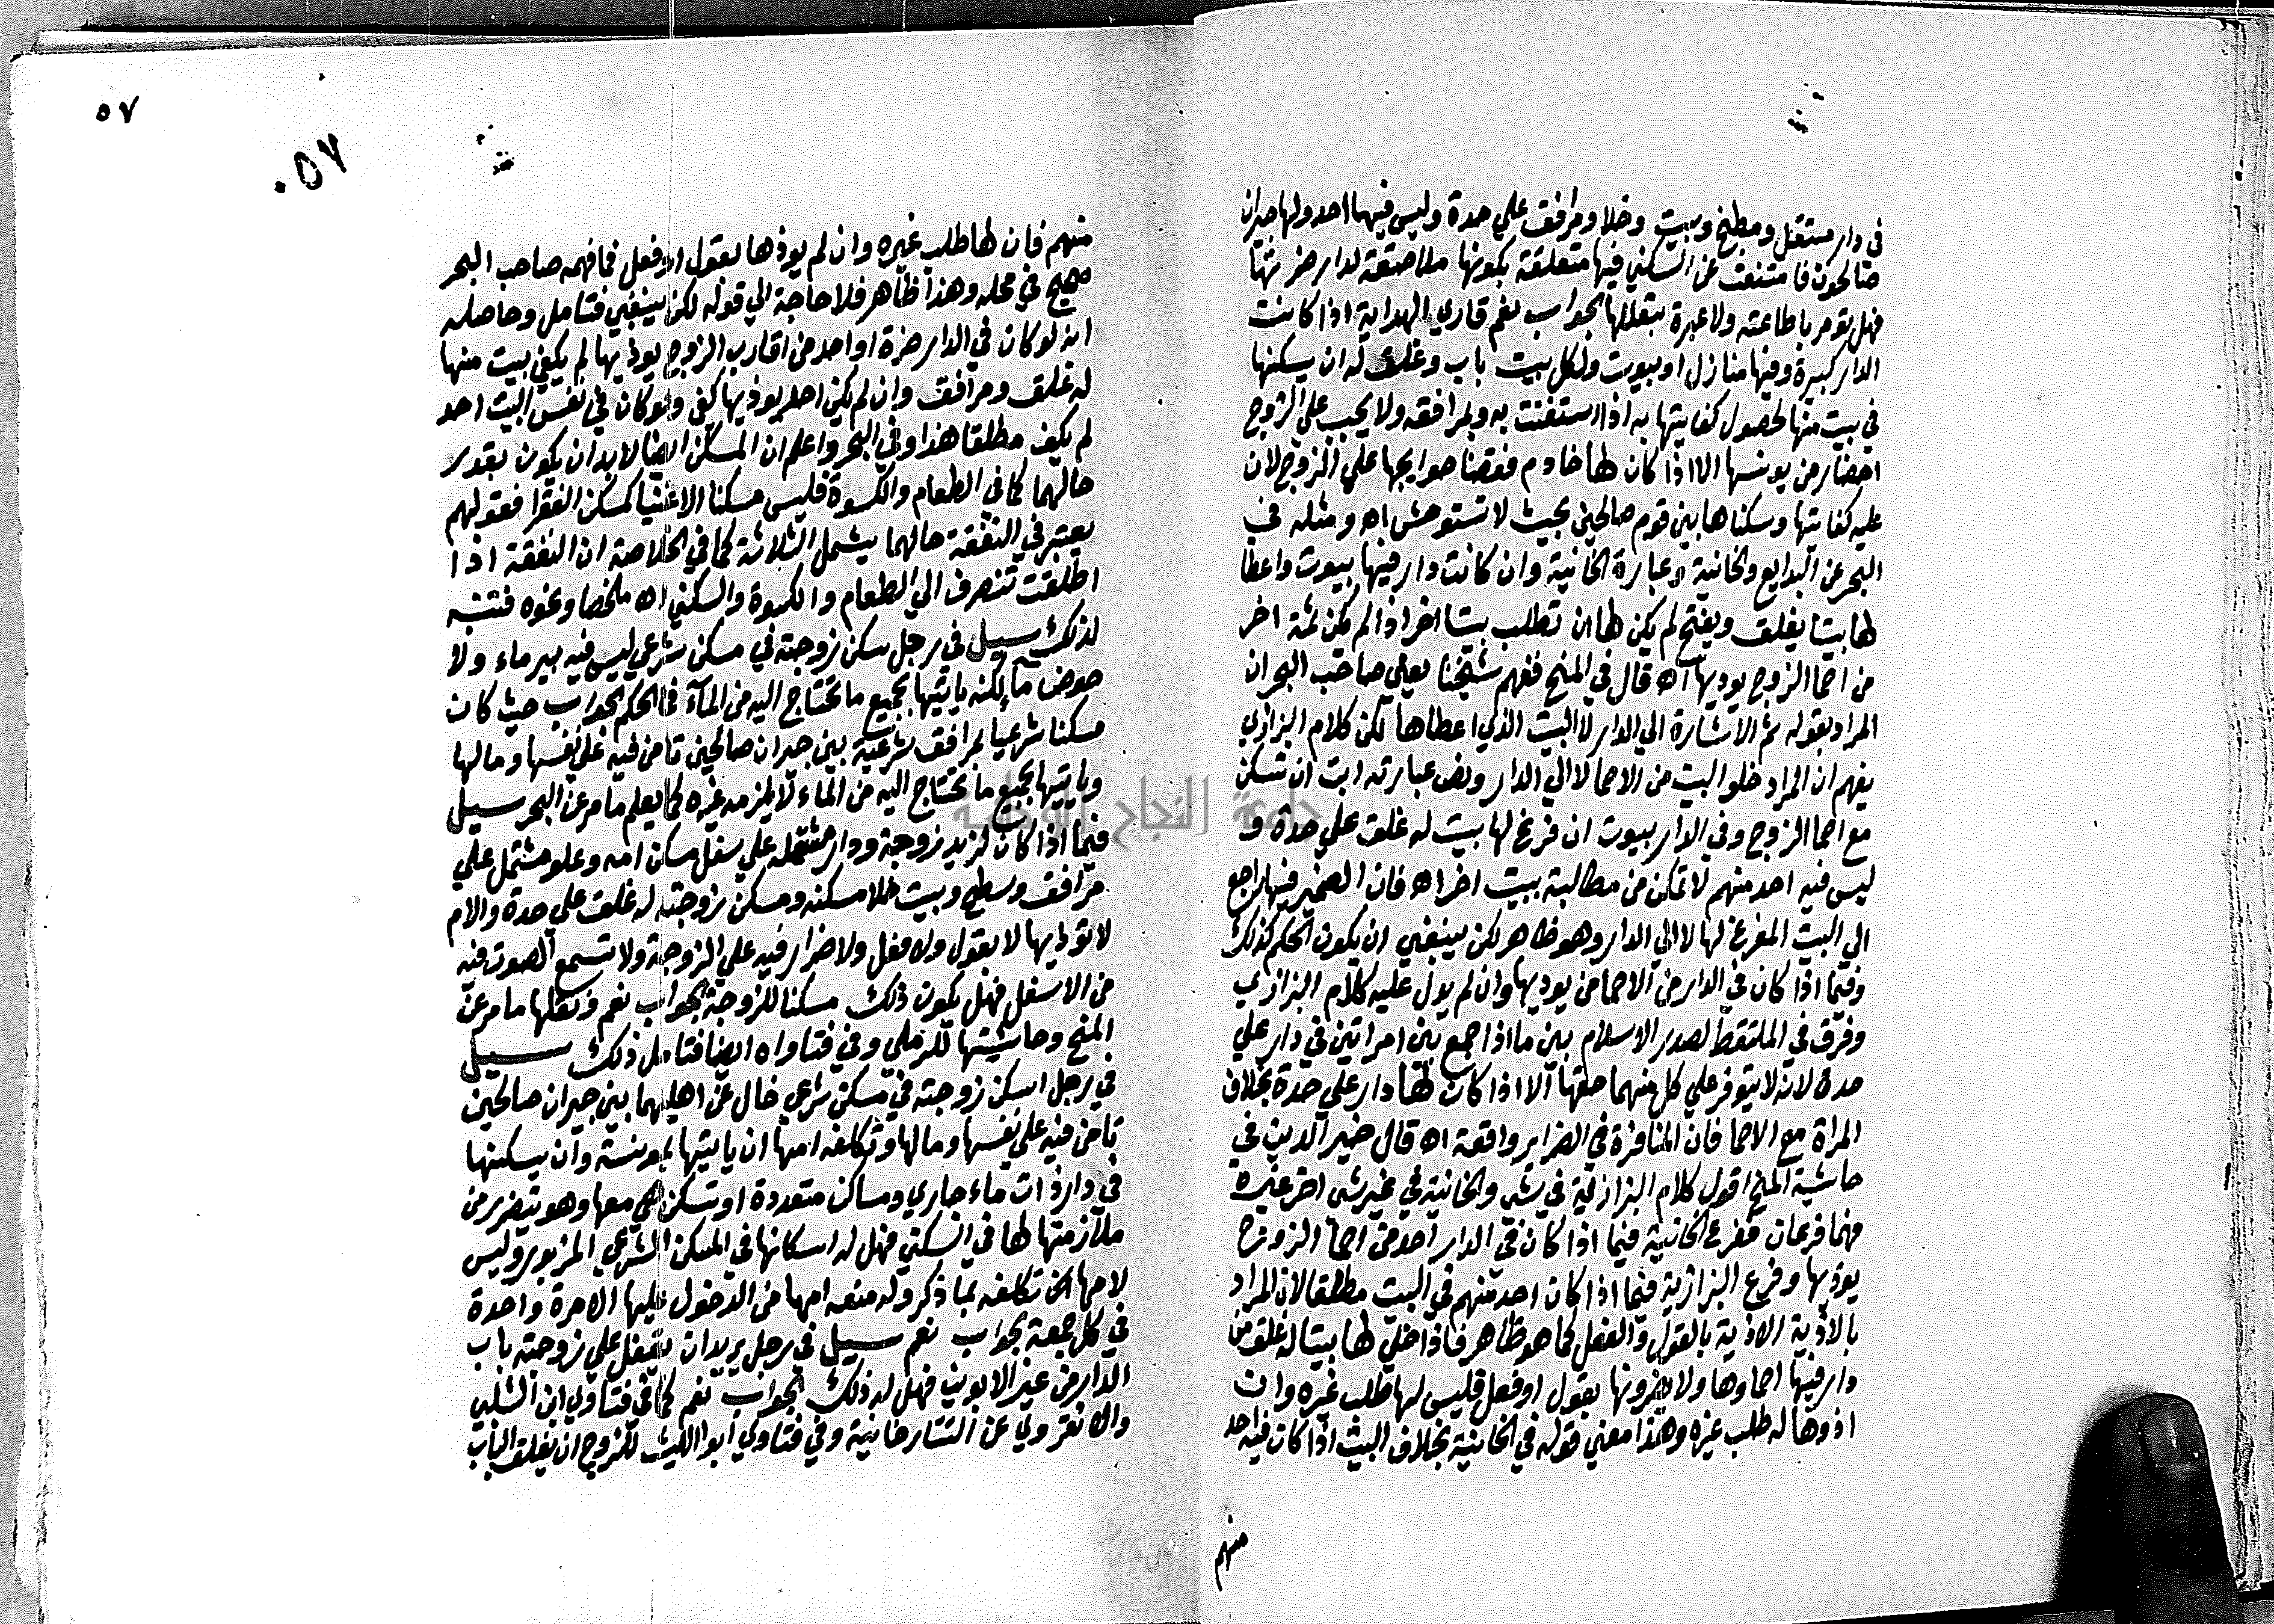 في دار مستقل ومطبخ وبيت وخلا ومرافق علي حدة وليس فيها احد ولها جيران
صالحون فامتنعت عن السكني فيها متعلقة بكونها ملاصقة لدار ضرتها
فهل تومر باطاعته ولا عبرة بتعللها الجواب نعم قاري الهداية اذا كانت
الدار كبيرة وفيها منازل او بيوت ولكل بيت باب وغلق له ان يسكنها
في بيت منها لحصول كفايتها به اذا استغنت به وبمرافقه ولا يجب علي الزوج
احضار من يونسها الا اذا كان لها خادم فقضا حوايجها علي الزوج لان
عليه كفايتها وسكناها بين قوم صالحين بحيث لا تستوحش اه ومثله في
البحر عن البدايع والخانية وعبارة الخانية وان كانت دار فيها بيوت واعطا
لها بيتا يغلق ويفتح لم يكن لها ان تطلب بيتا اخر اذا لم يكن ثمة اخر
من احما الزوج يوديها اه قال في المنح ففهم شيخنا يعني صاحب البحر ان
المراد بقوله ثم الاشارة الي الدار لا البيت الذي اعطاها لكن كلام البزازي
يفهم ان المراد خلو البيت من الاحما لا الي الدار ونص عبارته ابت ان تسكن
مع احما الزوج وفي الدار بيوت ان فرغ لها بيت له غلق علي حدة و
ليس فيه احد منهم لا تمكن من مطالبة ببيت اخر اه فان الضمير فيها راجع
الي البيت المفرغ لها لا الي الدار وهو ظاهر لكن ينبغي ان يكون الحكم كذلك
وفيما اذا كان في الدار من الاحما من يوديها وان لم يدل عليه كلام البزازي
وفرق في الملتقط لصدر الاسلام بين ما اذا جمع بين امراتين في دار علي
حدة لانه لا يتوفر علي كل منهما حقها الا اذا كان لها دار علي حدة بخلاف
المراة مع الاحما فان المنافرة في الضراير واقعة اه قال خير الدين في
حاشية المنح اقول كلام البزازية في شي والخانية في غير شي اخر غيره
فهما فرعان ففرع الخانية فيما اذا كان في الدار احد من احما الزوج
يوذيها وفرع البزازية فيما اذا كان احد منهم في البيت مطلقا لان المراد
بالاذية الاذية بالقول والفعل كما هو ظاهر فاذا اخلي لها بيتا له غلق من
دار فيها احماوها ولا يضرونها بقول او فعل فليس لها طلب غيره وان
اذوها له طلب غيره وهذا معني قوله في الخانية بخلاف البيت اذا كان فيه احد
منهم
٥٧
٠٥٧
منهم فان لها طلب غيره وان لم يوذها بقول او فعل فما فهمه صاحب البحر
صحيح في محله وهذا ظاهر فلا حاجة الي قوله لكن ينبغي فتامل وحاصله
انه لو كان في الدار ضرة او احد من اقارب الزوج يوذيها لم يكفي بيت منها
له غلق ومرافق وان لم يكن احد يوذيها كفي ولو كان في نفس البيت احد
لم يكف مطلقا هذا وفي البحر واعلم ان المسكن ايضا لابد ان يكون بقدر
حالهما كما في الطعام والكسوة فليس مسكنا الاغنيا كمسكن الفقرا فقولهم
يعتبر في النفقة حالهما يشمل الثلاثة كما في الخلاصة ان النفقة اذا
اطلقت تنصرف الي الطعام والكسوة والسكني اه ملخصا ونحوه فتنبه
لذلك سيل في رجل سكن زوجته في مسكن شرعي ليس فيه بير ماء ولا
حوض ما لكنه ياتيها بجميع ما تحتاج اليه من المآء فما الحكم الجواب حيث كان
مسكنا شرعيا بمرافق شرعية بين جيران صالحين تامن فيه علي نفسها ومالها
وياتيها بجميع ما تحتاج اليه من الماء لا يلزمه غيره كما يعلم ما مر عن البحر سيل
فيما اذا كان لزيد زوجة ودار مشتملة علي سفل مسكن امه وعلو مشتمل علي
مرافق وسطح وبيت خلا مسكنه ومسكن زوجته له غلق علي حدة والام
لا توذيها لا بقول ولا فعل ولا ضرار فيه علي الزوجة ولا تسمع الصوت فيه
من الاسفل فهل يكون ذلك مسكنا للزوجة الجواب نعم ونقلها ما مر عن
المنح وحاشيتها للرملي وفي فتاواه ايضا فتامل ذلك سيل
في رجل اسكن زوجته في مسكن شرعي خال عن اهليهما بين جيران صالحين
تامن فيه علي نفسها ومالها وتكلفه امها ان ياتيها بمونسة وان يسكنها
في دار ذات ماء جاري ومساكن متعددة او تسكن هي معها وهو يتضرر من
ملازمتها لها في السكني فهل له اسكانها في المسكن الشرعي المزبور وليس
لامها ان تكلفه بما ذكر وله منعه امها من الدخول عليها الا مرة واحدة
في كل جمعة الجواب نعم سيل في رجل يريد ان يقفل علي زوجته باب
الدار من غير الابوين فهل له ذلك الجواب نعم كما في فتاوي ابن الشلبي
والانقروي عن التتارخانية وفي فتاوي ابو الليث للزوج ان يغلق الباب
جامعة النجاح الوطنية